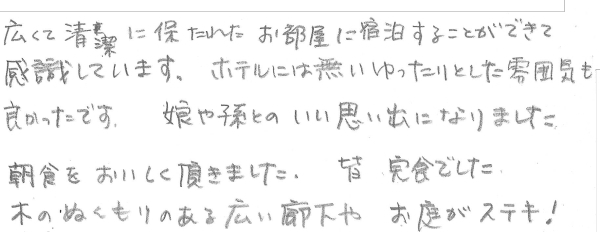 広くて清潔に保たれたお部屋に宿泊することができて
感識しています。ホテルには無いゆったりとした雰囲気も
良かったです。娘や孫とのいい思い出になりました
朝食をおいしく頂きました。皆 完食でした
木のぬくもりのある広い廊下や お庭がステキ!